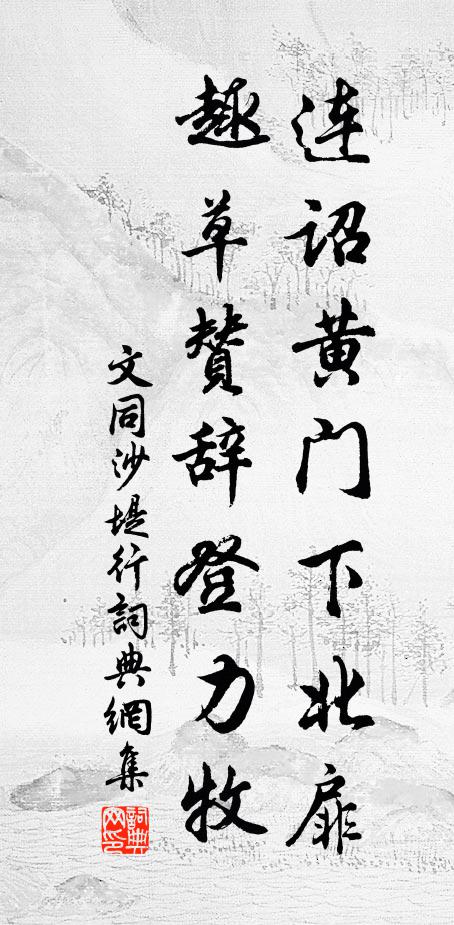 连诏黄门下北扉
趣草赞辞登力牧
文同沙堤行詞典網集
詞典网印